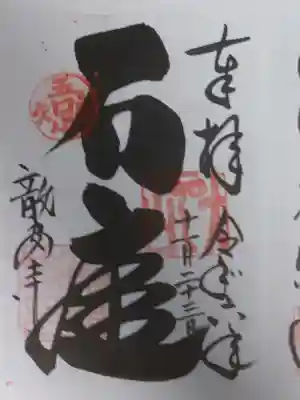 奉拝 令和六年
十一月二十三日
石庭
龍安寺